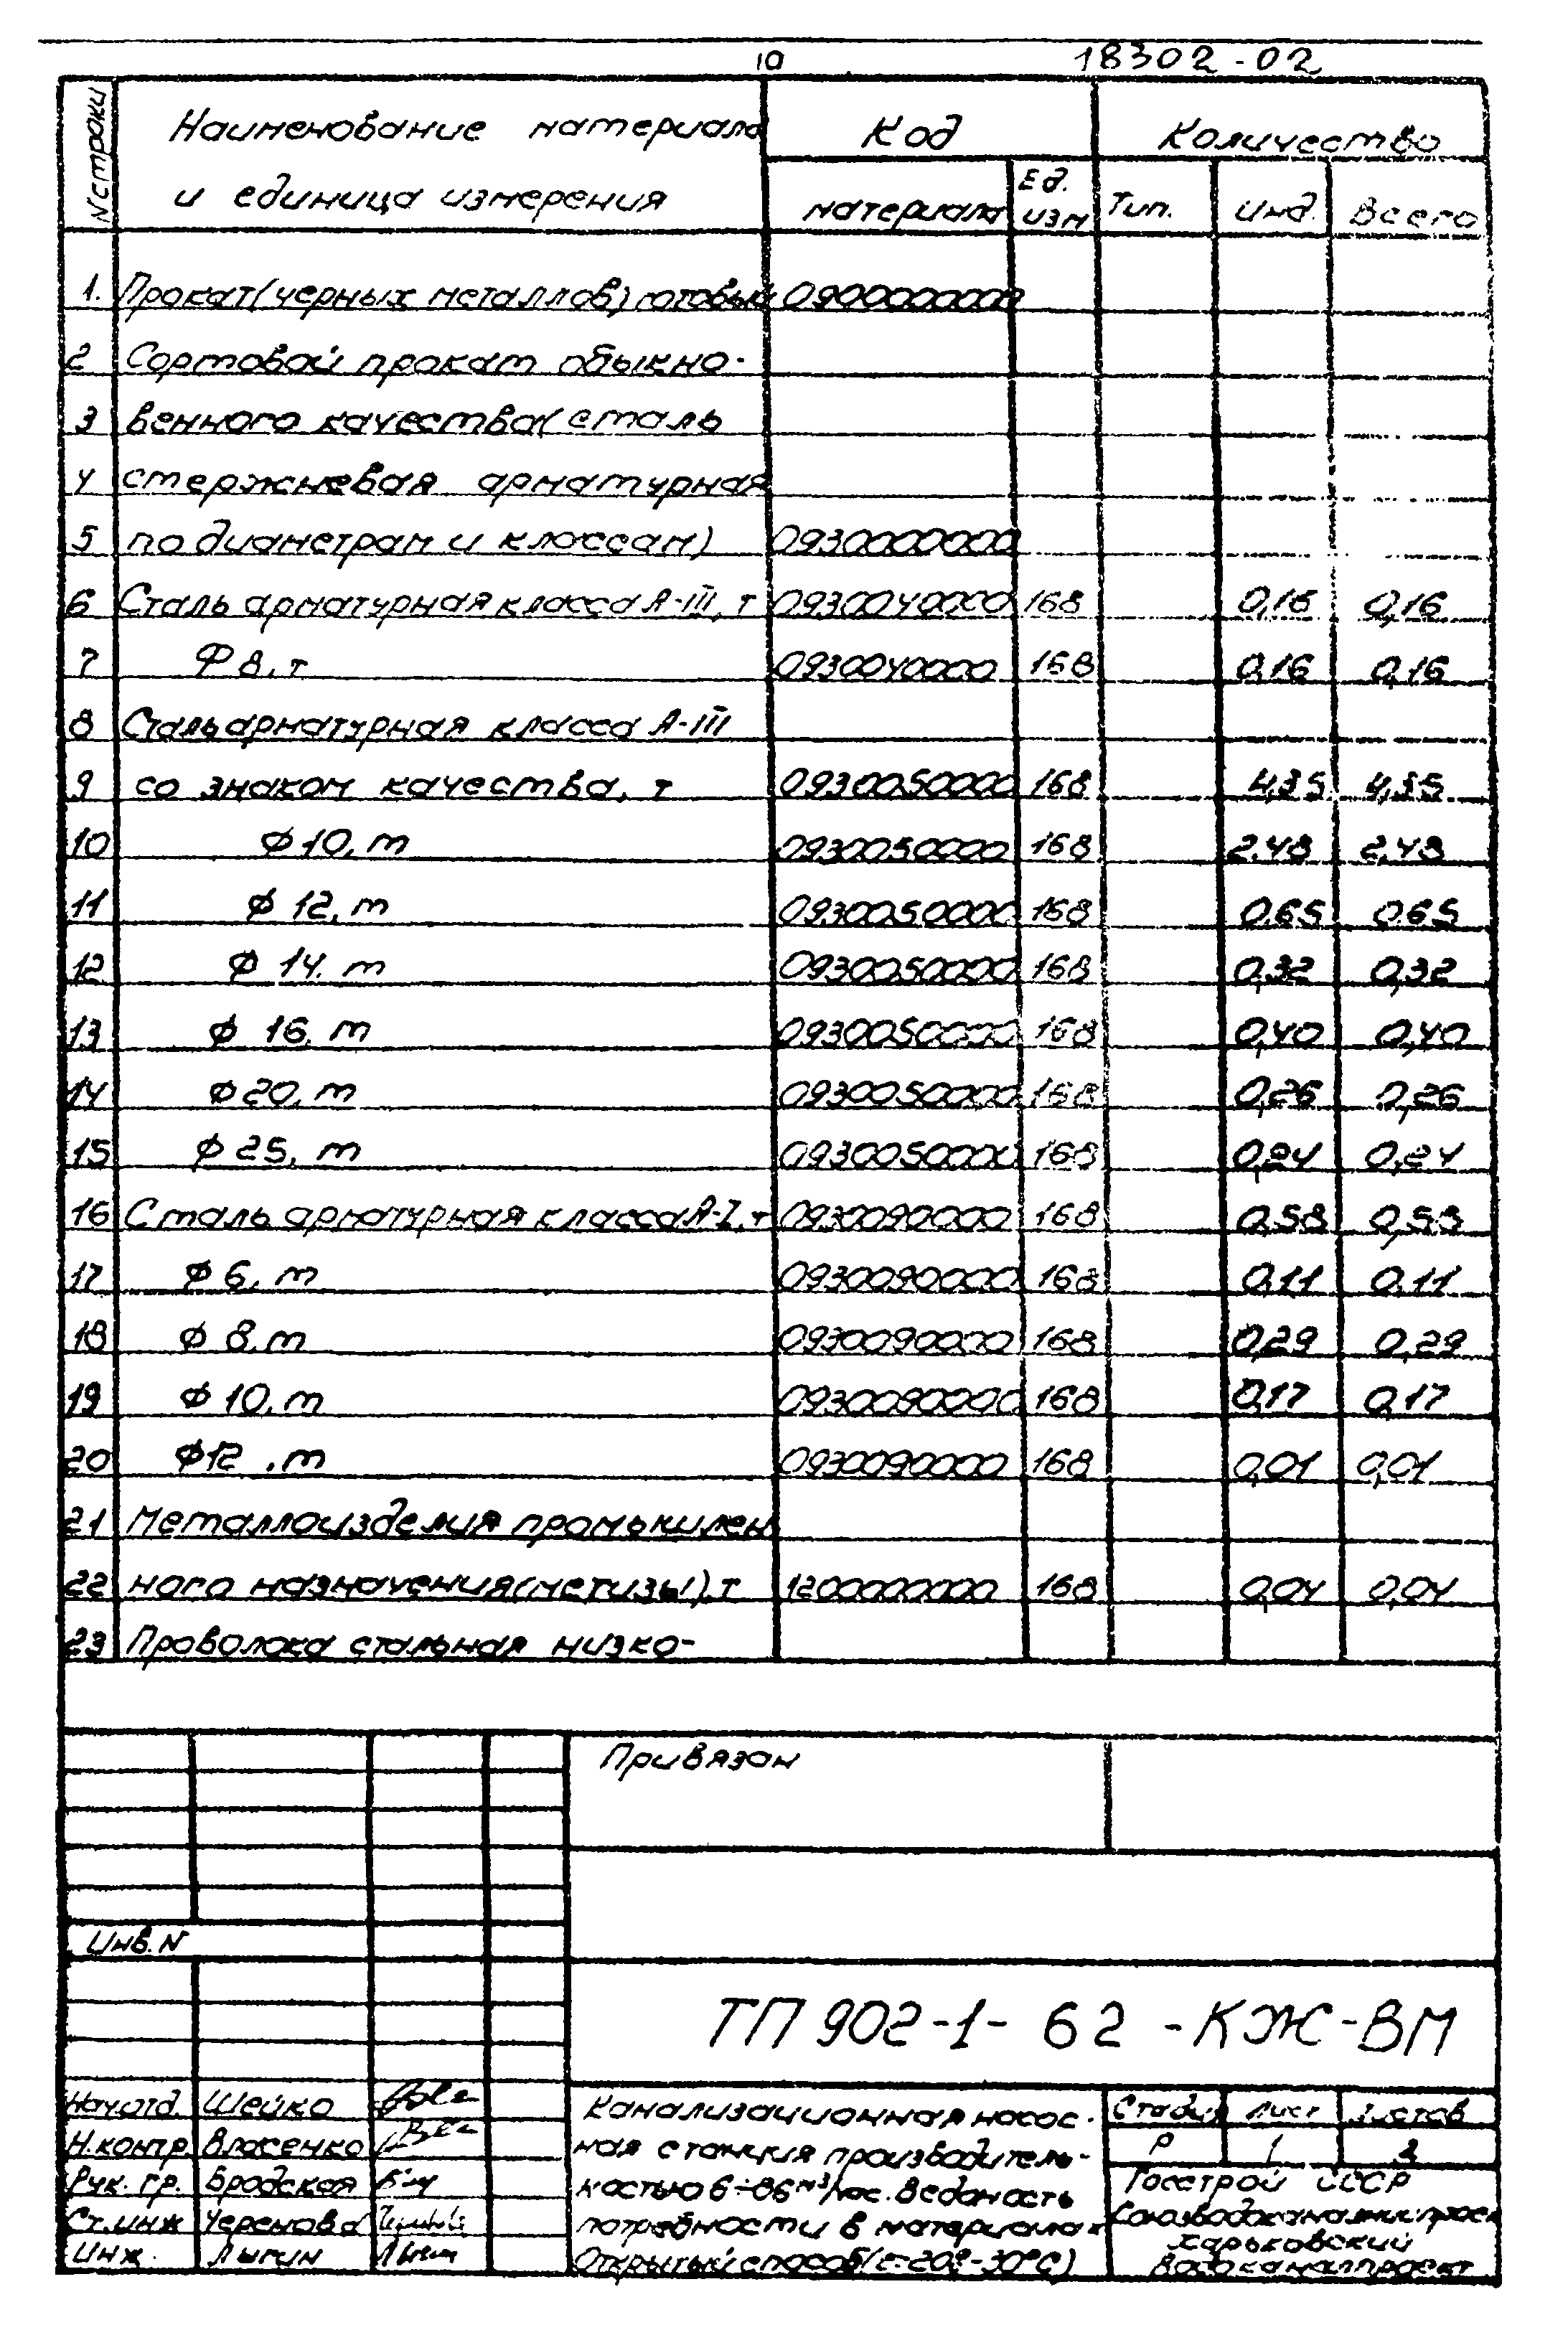 10
18302-02
N строки
Наименование материала
и единица измерения
Код
материала
Ед. изм
Количество
Тип. Инд. Всего
1. Прокат (черных металлов) готовый 0900000000
2 Сортовой прокат обыкно-
3 венного качества (сталь
4 стержневая арматурная
5 по диаметрам и классам) 0930000000
6 Сталь арматурная класса А-III, т 0930040000 168 0,16 0,16
7 Ф 8, т 0930040000 168 0,16 0,16
8 Сталь арматурная класса А-III
9 со знаком качества, т 0930050000 168 4,35 4,35
10 Ф 10, т 0930050000 168 2,48 2,48
11 Ф 12, т 0930050000 168 0,65 0,65
12 Ф 14, т 0930050000 168 0,32 0,32
13 Ф 16, т 0930050000 168 0,40 0,40
14 Ф 20, т 0930050000 168 0,26 0,26
15 Ф 25, т 0930050000 168 0,24 0,24
16 Сталь арматурная класса А-I, т 0930090000 168 0,58 0,58
17 Ф 6, т 0930090000 168 0,11 0,11
18 Ф 8, т 0930090000 168 0,29 0,29
19 Ф 10, т 0930090000 168 0,17 0,17
20 Ф 12, т 0930090000 168 0,01 0,01
21 Металлоизделия промышлен
22 ного назначения (метизы), т 1200000000 168 0,04 0,04
23 Проволока стальная низко-
Привязан
Инв. N
ТП 902-1-62-КЖ-ВМ
Нач.отд. Шейко
Н.контр. Власенко
Рук. гр. Бродская
Ст.инж Черенова
Инж. Лыгин
Канализационная насос-
ная станция производитель-
ностью 6÷86 м³/час. Ведомость
потребности в материалах
Открытый способ (t=-20°-30°С)
Стадия Лист Листов
Р 1
Госстрой СССР
Союзводоканалниипроект
Харьковский
Водоканалпроект